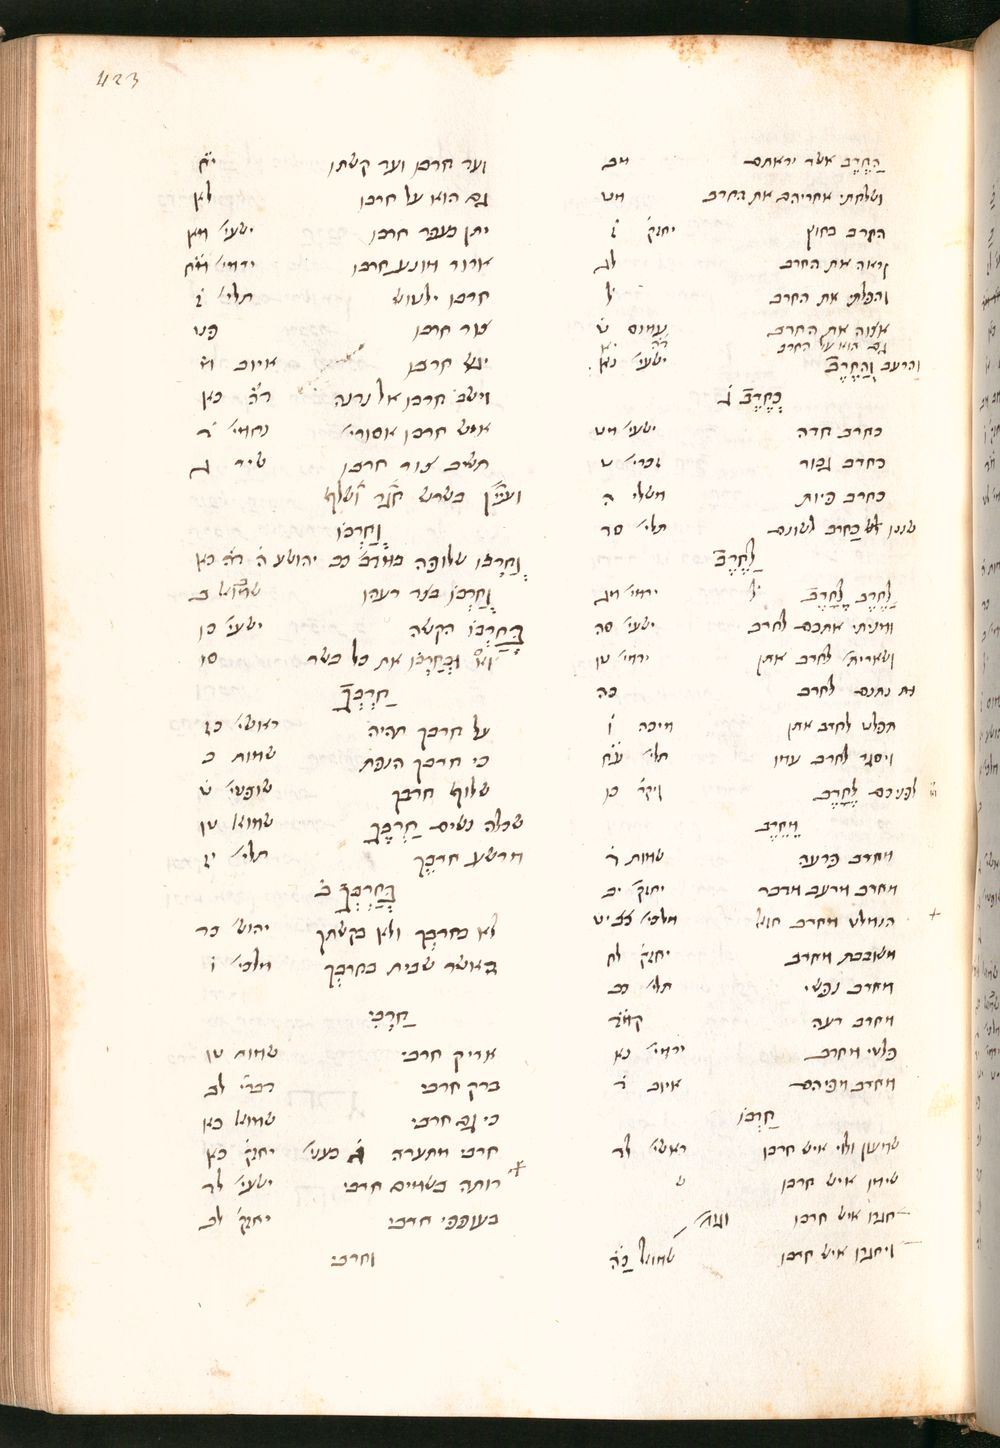 423
הַחֶרֶב אשר יראתם מב
ושלחתי אחריהם את החרב מט
החרב בחוץ יחזק' ז
וראה את החרב לג
והפלתי את החרב ל
אצוה את החרב עמוס ט
גם הוא על החרב
והרעב וְהַחֶרֶב ישעי' נא
כְּחֶרֶב ג
כחרב חדה ישעי' מט
כחרב גבור זכרי' ט
כחרב פיות משלי ה
שננו כַחרב לשונם תלי' סד
לַחֶרֶב
לַחֶרֶב לַחֶרֶב ירמי' מג
ומניתי אתכם לחרב ישעי' סה
ושארית' לחרב אתן ירמי' טו
נתנם לחרב כה
תפלט לחרב אתן מיכה ו
ויסגר לחרב עמו תלי' עח
לפניכם לֶחָרֶב ויקר' כו
מֵחֶרֶב
מחרב פרעה שמות
מחרב מרעב מדבר יחזק' יב
הנמלט מחרב חזאל מלכי' יט
משובבת מחרב יחזק' לח
מחרב נפשי תלי' כב
מחרב רעה קמד
פלטי מחרב ירמי' נא
מחרב מפיהם איוב ה
חַרְבּוֹ
שמעון ולוי איש חרבו ראשי' לד
שימו איש חרבו
חגרו איש חרבו
ויחגרו איש חרבו שמואל כה
ועד חרבו ועד קשתו יח
גם הוא על חרבו לא
יתן כעפר חרבו ישעי' מא
ארור מונע חרבו ירמי' מח
חרבו ילטוש תלי' ז
צור חרבו פט
יגש חרבו איוב מ
וישב חרבו אל נדנה דה כא
איש חרבו אסורי' נחמי' ד
תשיב צור חרבו
ועיין בשרש חגר ושלף
וְחַרְבּוֹ
וְחַרְבּוֹ שלופה בידו כב יהושע ה דה כא
וְחַרְבּוֹ בצד רעהו שמואל ב
בְּחַרְבּוֹ הקשה ישעי' כז
וּבְחַרְבּוֹ את כל בשר סו
חַרְבְּךָ
על חרבך תחיה ראשי' כז
כי חרבך הנפת שמות כ
שלוף חרבך שופטי' ט
שכלה נשים חַרְבֶּךָ שמוא' טו
מרשע חרבֶּך תלי' יז
בְּחַרְבְּךָ ב
לא בחרבך ולא בקשתך יהוש' כד
האשר שבית בחרבְּך מלכי' ו
חַרְבִּי
אריק חרבי שמות טו
ברק חרבי דברי' לב
כי גם חרבי שמוא' כא
חרבי מתערה יחזק' כא
רותה בשמים חרבי ישעי' לד
בעופפי חרבי יחזק' לב
וחרבי